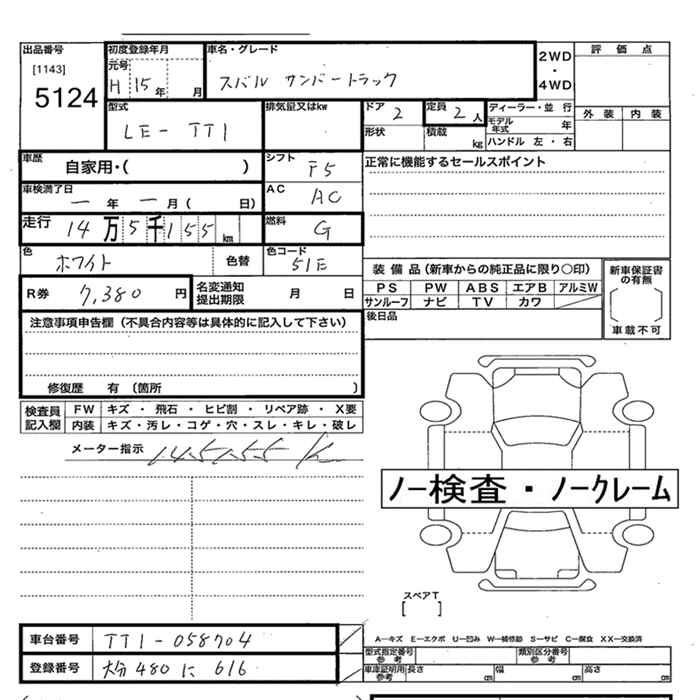 出品番号
[1143]
5124
初度登録年月
元号
H 15 年 月
車名・グレード
スバル サンバートラック
2WD
・
4WD
評価点
外装 内装
型式
LE-TT1
排気量又はkw
ドア
2
定員
2人
形状
積載
kg
ディーラー・並行
モデル年式 年
ハンドル 左・右
車歴
自家用・( )
シフト
F5
正常に機能するセールスポイント
車検満了日
ー年 ー月( 日)
AC
AC
走行
14万5千155km
燃料
G
色
ホワイト
色替
色コード
51E
装備品(新車からの純正品に限り○印)
PS PW ABS エアB アルミW
サンルーフ ナビ TV カワ
新車保証書の有無
車載不可
R券
7,380円
名変通知
提出期限
月 日
後日品
注意事項申告欄(不具合内容等は具体的に記入して下さい)
修復歴 有(箇所 )
検査員記入欄
FW キズ・飛石・ヒビ割・リペア跡・X要
内装 キズ・汚レ・コゲ・穴・スレ・キレ・破レ
メーター指示
145155 k
ノー検査・ノークレーム
スペアT
[ ]
A-キズ E-エクボ U-凹み W-補修跡 S-サビ C-腐食 XX-交換済
車台番号
TT1-058704
登録番号
大分480に616
型式指定番号
参考
類別区分番号
参考
車庫証明用
参考
長さ cm
幅 cm
高さ cm